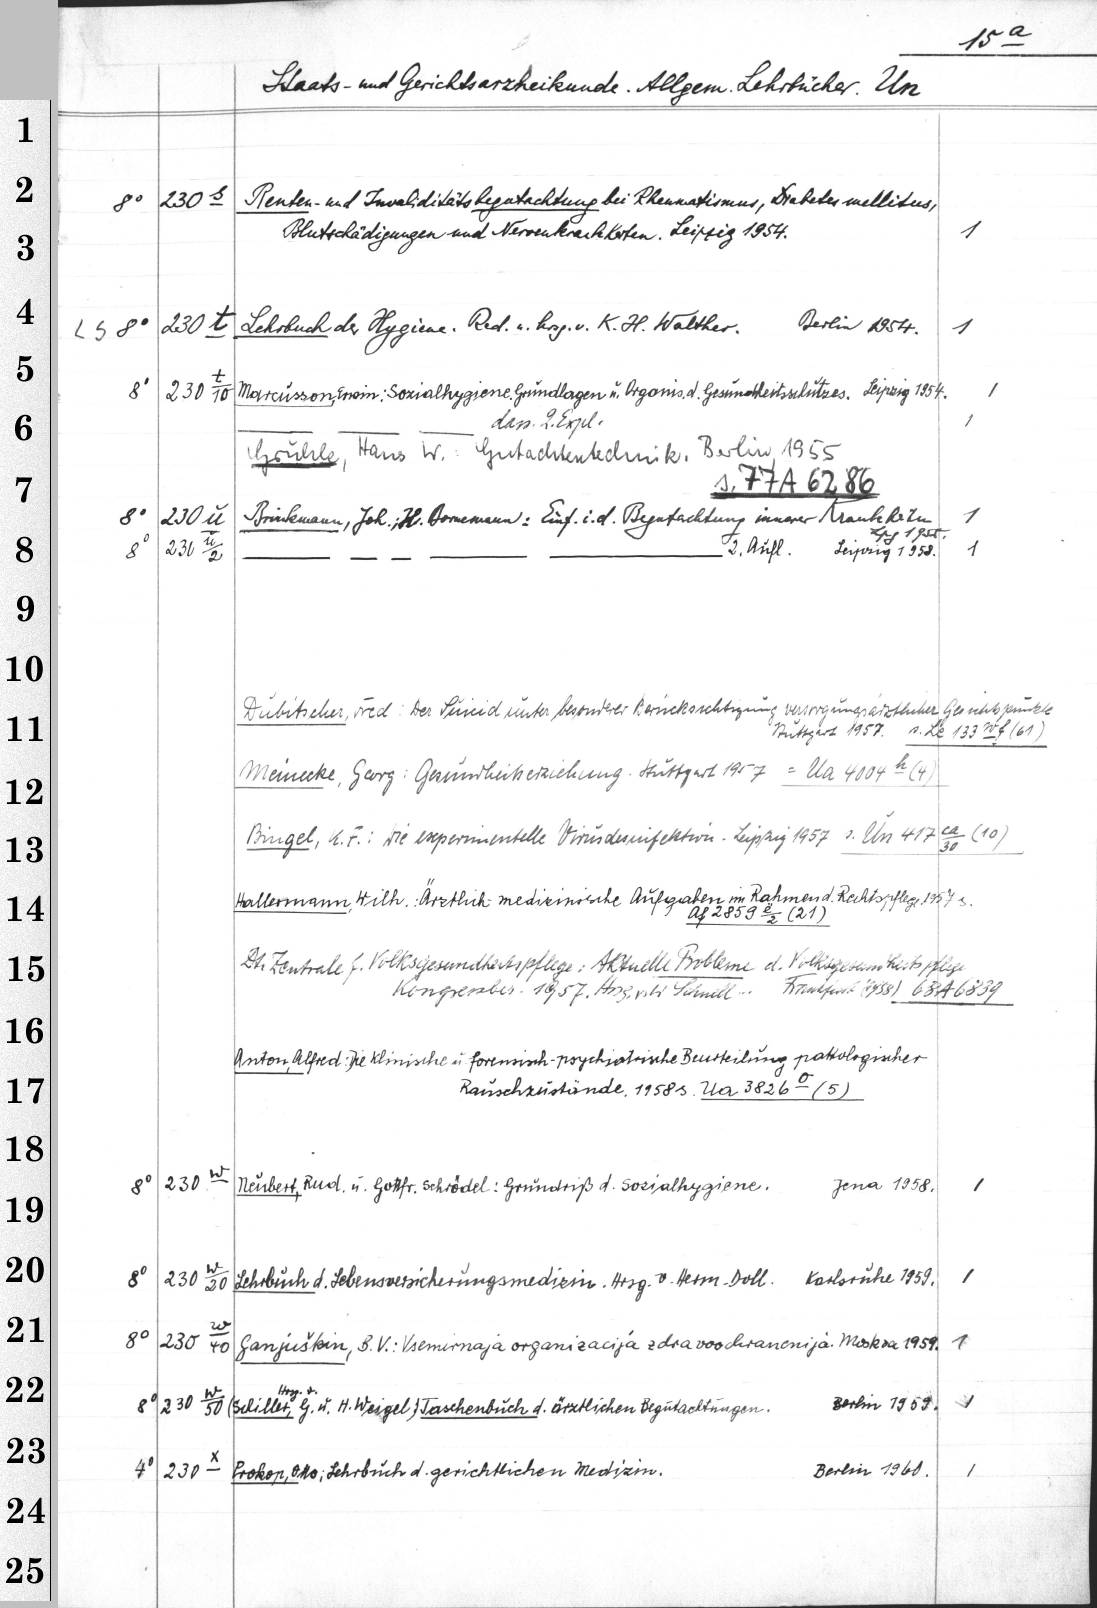 15 a
Staats- und Gerichtsarzneikunde. Allgem. Lehrbücher. Un
1
2
8° 230 s Renten- und Invaliditätsbegutachtung bei Rheumatismus, Diabetes mellitus,
3 Blutschädigungen und Nervenkrankheiten. Leipzig 1954. 1
4 LS 8° 230 t Lehrbuch der Hygiene. Red. u. hrsg. v. K. H. Walther. Berlin 1954. 1
5 8° 230 t/10 Marcusson, Erwin: Sozialhygiene. Grundlagen u. Organis. d. Gesundheitsschutzes. Leipzig 1954. 1
6 dass. 2. Expl. 1
Gruhle, Hans W.: Gutachtentechnik. Berlin 1955
7 s. 77A 6286
8° 230 u Brinkmann, Joh.; H. Bornemann: Einf. i. d. Begutachtung innerer Krankheiten 1
Lpg 1955.
8 8° 230 u/2 2. Aufl. Leipzig 1958. 1
9
10
Dubitscher, Fred: Der Suicid unter besonderer Berücksichtigung versorgungsärztlicher Gesichtspunkte
11 Stuttgart 1957. s. Le 133 wf (61)
Meinecke, Georg: Gesundheitserziehung. Stuttgart 1957 = Ua 4004 h (4)
12
13 Bingel, K. F.: Die experimentelle Virusdesinfektion. Leipzig 1957 s. Un 417 ca/30 (10)
14 Hallermann, Wilh.: Ärztlich-medizinische Aufgaben im Rahmen d. Rechtspflege. 1957 s.
Af 2859 e/2 (21)
15 Dt. Zentrale f. Volksgesundheitspflege: Aktuelle Probleme d. Volksgesundheitspflege
Kongressber. 1957. Hrsg. v. Schnell... Frankfurt (1958) 68A6839
16
Anton, Alfred: Die klinische u forensisch-psychiatrische Beurteilung pathologischer
17 Rauschzustände. 1958 s. Ua 3826 o (5)
18
8° 230 w Neubert, Rud. u. Gottfr. Schrödel: Grundriß d. Sozialhygiene. Jena 1958. 1
19
20 8° 230 w/20 Lehrbuch d. Lebensversicherungsmedizin. Hrsg. v. Herm. Doll. Karlsruhe 1959. 1
21 8° 230 w/40 Ganjuškin, B. V.: Vsemirnaja organizacija zdravoochranenija. Moskva 1959. 1
22 Hrsg. v.
8° 230 w/50 (Schiller, G. u. H. Weigel) Taschenbuch d. ärztlichen Begutachtungen. Berlin 1959. 1
23 4° 230 x Prokop, Otto: Lehrbuch d. gerichtlichen Medizin. Berlin 1960. 1
24
25